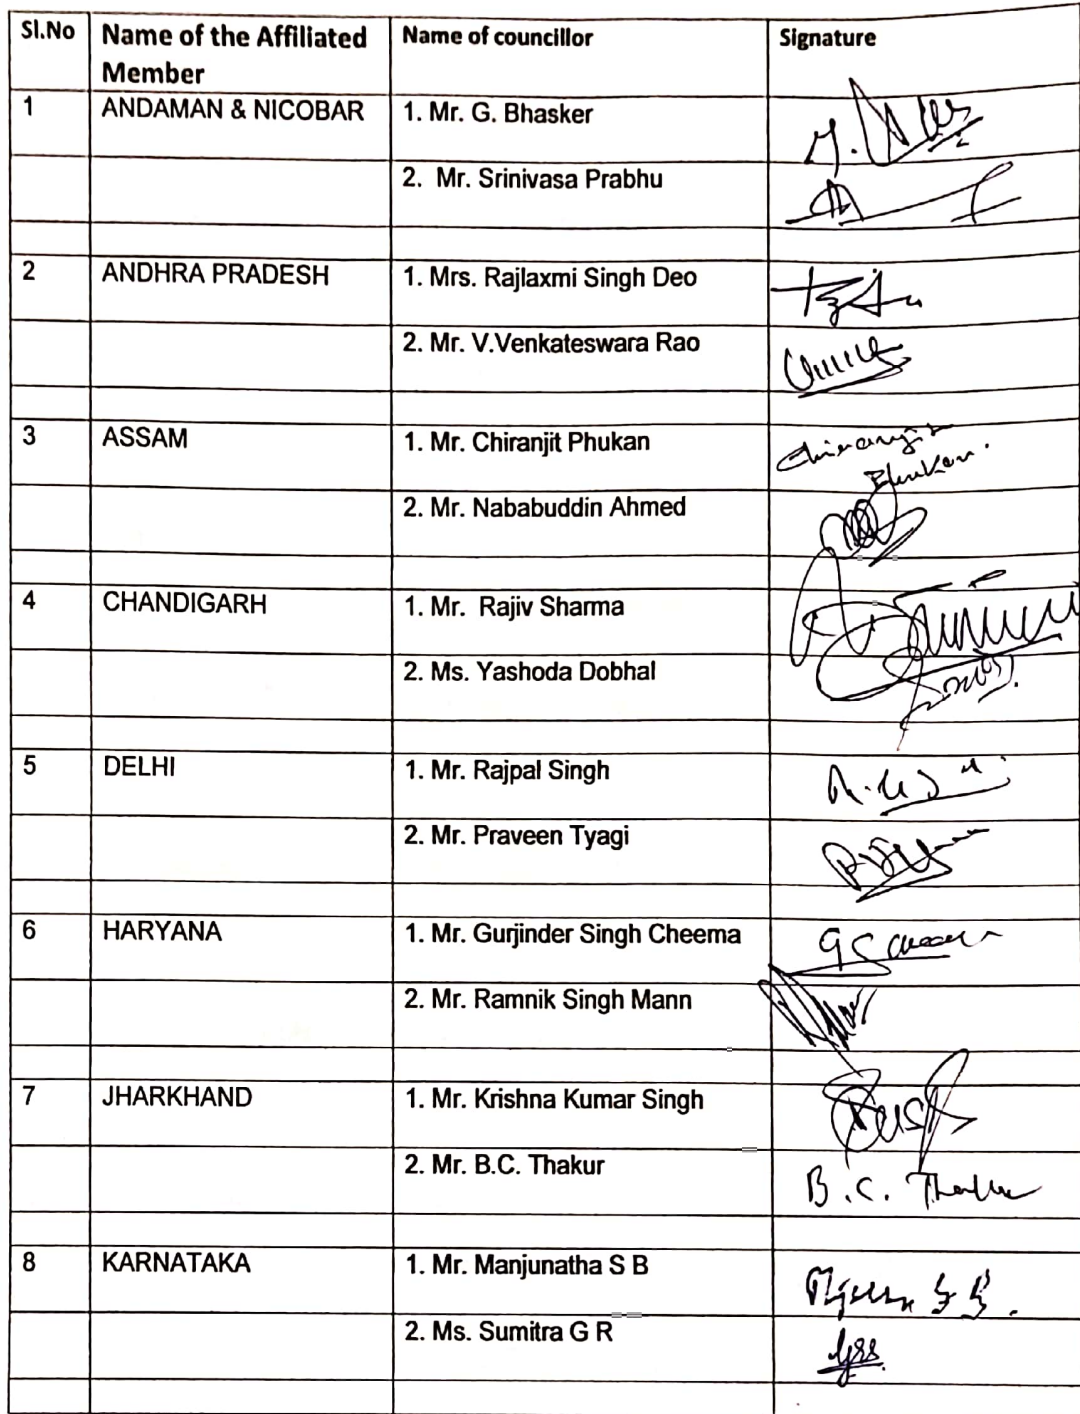 Sl.No Name of the Affiliated Name of councillor Signature
Member
1 ANDAMAN & NICOBAR 1. Mr. G. Bhasker
2. Mr. Srinivasa Prabhu
2 ANDHRA PRADESH 1. Mrs. Rajlaxmi Singh Deo
2. Mr. V.Venkateswara Rao
3 ASSAM 1. Mr. Chiranjit Phukan Chiranjit
Phukan.
2. Mr. Nababuddin Ahmed
4 CHANDIGARH 1. Mr. Rajiv Sharma
2. Ms. Yashoda Dobhal
5 DELHI 1. Mr. Rajpal Singh
2. Mr. Praveen Tyagi
6 HARYANA 1. Mr. Gurjinder Singh Cheema
2. Mr. Ramnik Singh Mann
7 JHARKHAND 1. Mr. Krishna Kumar Singh
2. Mr. B.C. Thakur B.C. Thakur
8 KARNATAKA 1. Mr. Manjunatha S B
2. Ms. Sumitra G R